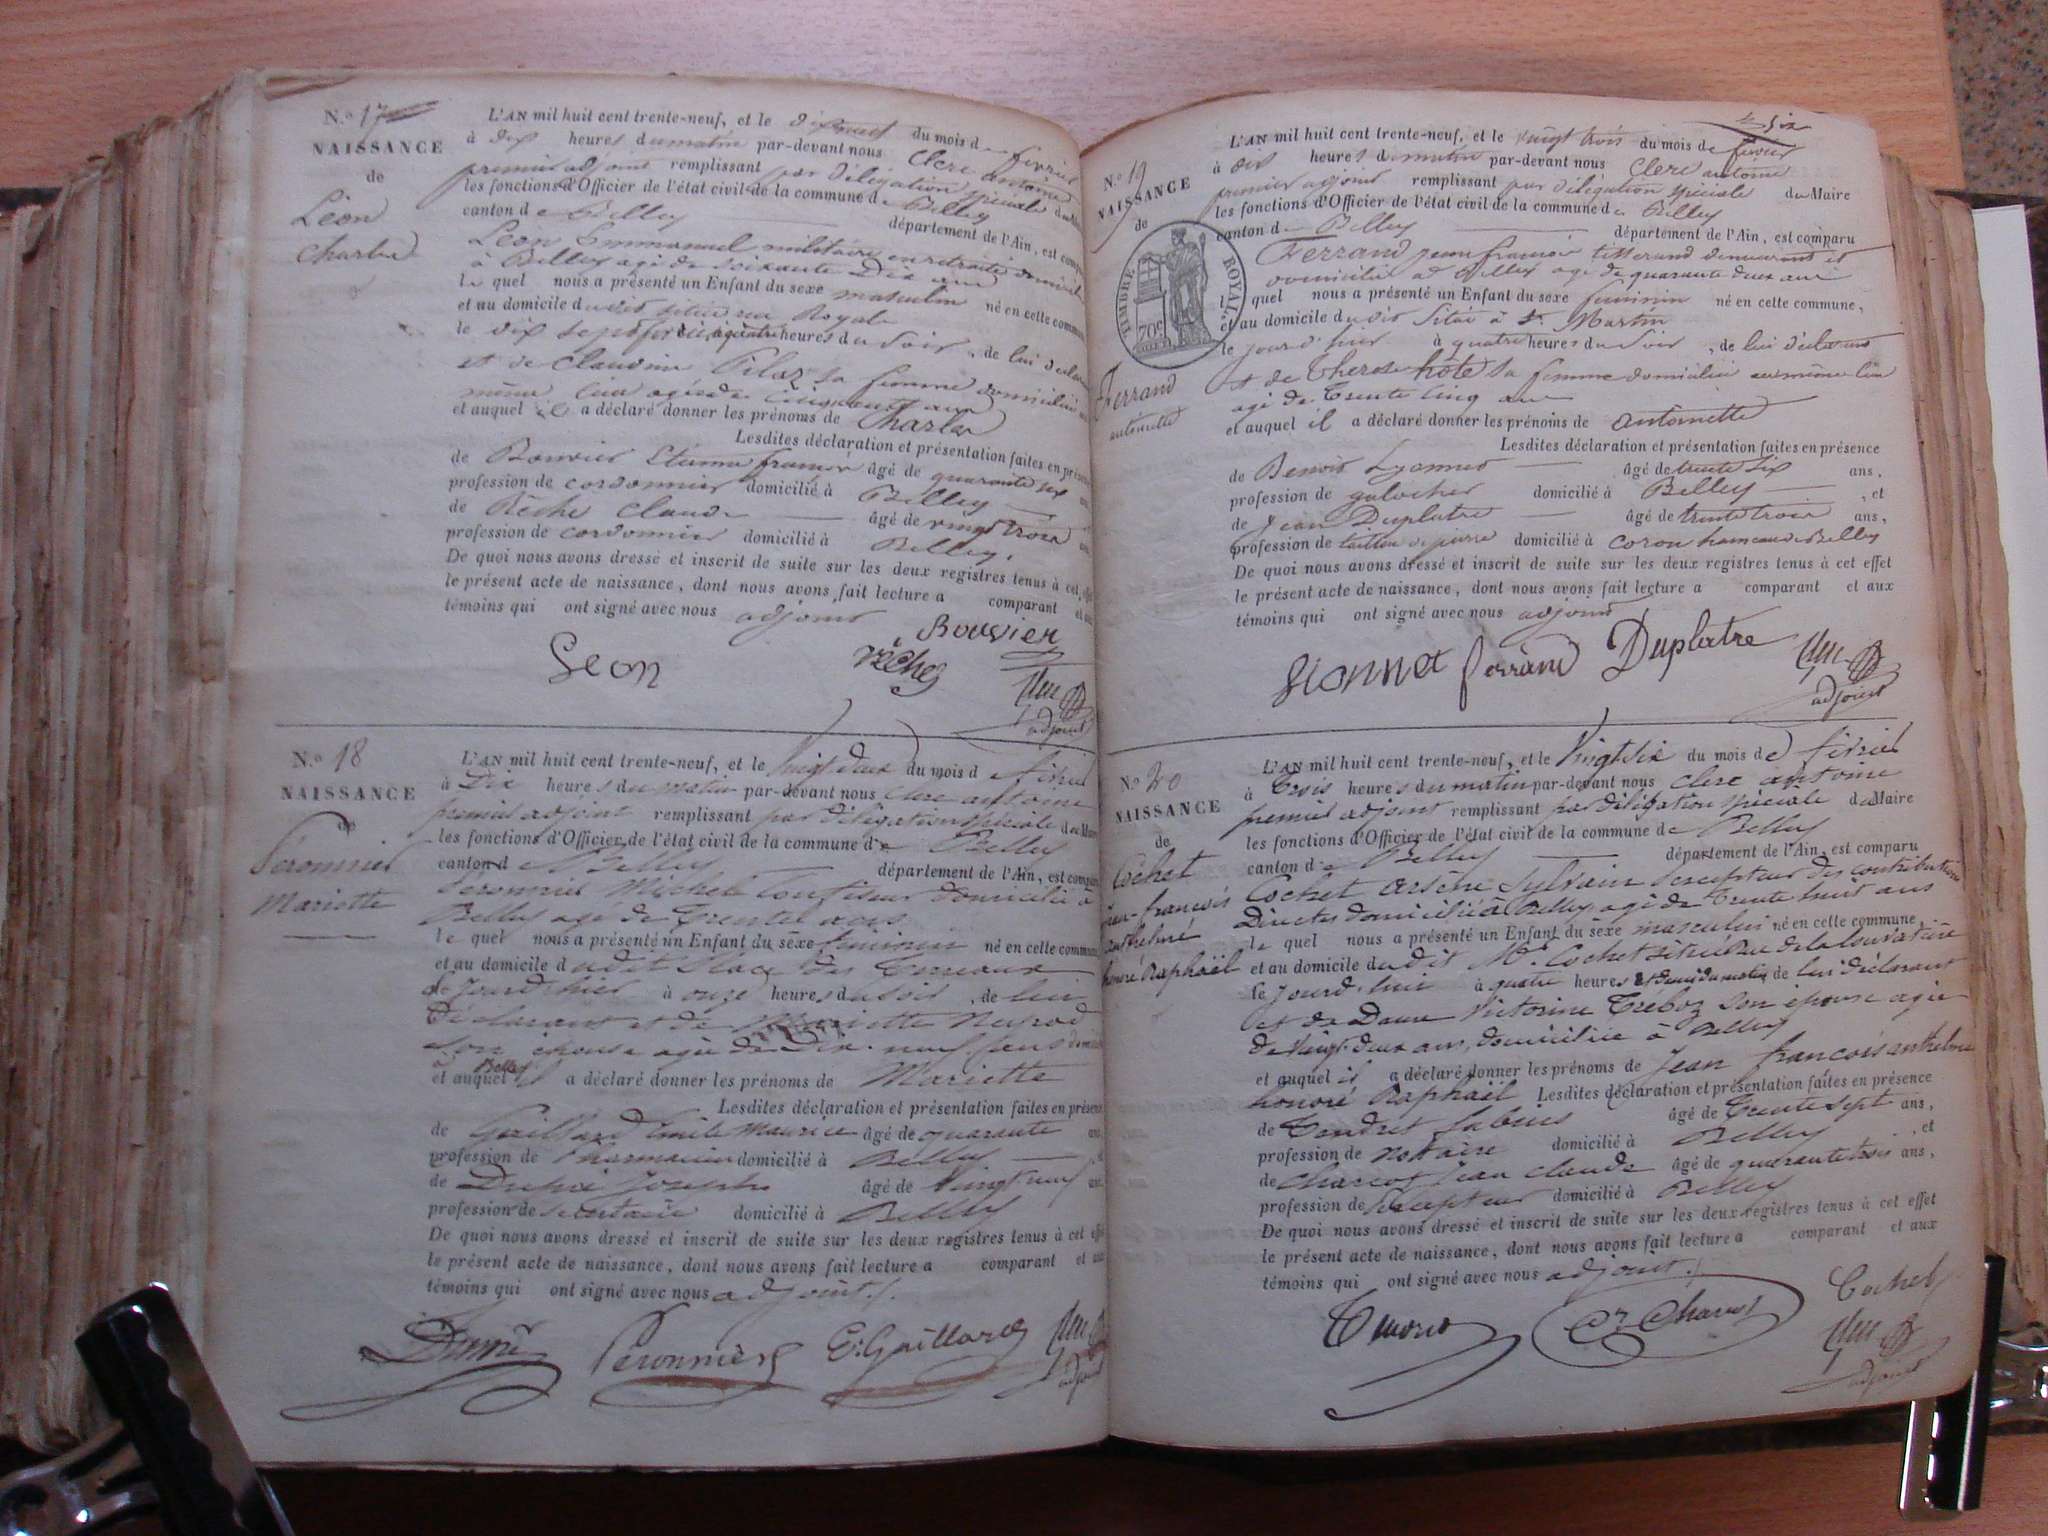 N.o 17
NAISSANCE
de
Léon
Charles
L'AN mil huit cent trente-neuf, et le dixneuf du mois de février
à dix heures du matin par-devant nous Clerc antoine
premier adjoint remplissant par délégation spéciale du Maire
les fonctions d'Officier de l'état civil de la commune de Belley
canton de Belley département de l'Ain, est comparu
Léon Emmanuel militaire en retraite domicilié
à Belley agé de soixante Dix ans
le quel nous a présenté un Enfant du sexe masculin né en cette commune
et au domicile du dit situé rue Royale
le dix sept février à quatre heures du soir, de lui déclarant
et de Claudine Piloz sa femme domiciliée au
même lieu agée de cinquante ans
et auquel il a déclaré donner les prénoms de Charles
Lesdites déclaration et présentation faites en présence
de Bouvier Etienne françois âgé de quarante six ans
profession de cordonnier domicilié à Belley
de Réche Claude âgé de vingt trois ans
profession de cordonnier domicilié à Belley.
De quoi nous avons dressé et inscrit de suite sur les deux registres tenus à cet effet
le présent acte de naissance, dont nous avons fait lecture a comparant et aux
témoins qui ont signé avec nous adjoint
Bouvier
Leon
réche
adjoint
N.o 18
NAISSANCE
de
Peronnier
Mariette
L'AN mil huit cent trente-neuf, et le Vingt deux du mois de février
à Dix heures du matin par-devant nous clerc antoine
premier adjoint remplissant par délégation spéciale du Maire
les fonctions d'Officier de l'état civil de la commune de Belley
canton de Belley département de l'Ain, est comparu
Peronnier Michel Confiseur domicilié à
Belley agé de Trente ans
le quel nous a présenté un Enfant du sexe feminin né en cette commune
et au domicile dudit Place des Terreaux
le jourd'hier à onze heures du soir, de lui
Déclarant et de Mariette
son épouse agée de Dix-neuf ans
à Belley
et auquel il a déclaré donner les prénoms de Mariette
Lesdites déclaration et présentation faites en présence
de Gaillard Emile Maurice âgé de quarante ans
profession de Pharmacien domicilié à Belley
de Joseph âgé de Vingt neuf ans
profession de secrétaire domicilié à Belley
De quoi nous avons dressé et inscrit de suite sur les deux registres tenus à cet effet
le présent acte de naissance, dont nous avons fait lecture a comparant et aux
témoins qui ont signé avec nous adjoint.
Peronnier E. Gaillard
adjoint
six
N.o 19
NAISSANCE
de
TIMBRE ROYAL
70c
Ferrand
antoinette
L'AN mil huit cent trente-neuf, et le vingt trois du mois de fevrier
à dix heures du matin par-devant nous Clerc antoine
premier adjoint remplissant par délégation spéciale du Maire
les fonctions d'Officier de l'état civil de la commune de Belley
canton de Belley département de l'Ain, est comparu
Ferrand jean françois tisserand demeurant et
domicilié à Belley agé de quarante deux ans
le quel nous a présenté un Enfant du sexe feminin né en cette commune,
et au domicile du dit situé à St. Martin
le jour d'hier à quatre heures du soir, de lui déclarant
et de Therese hôte sa femme domiciliée au même lieu
agé de trente cinq ans
et auquel il a déclaré donner les prénoms de antoinette
Lesdites déclaration et présentation faites en présence
de Benoit Lyonnet âgé de trente six ans,
profession de galocher domicilié à Belley, et
de Jean Duplatre âgé de trente trois ans,
profession de tailleur de pierre domicilié à coron hameau de Belley
De quoi nous avons dressé et inscrit de suite sur les deux registres tenus à cet effet
le présent acte de naissance, dont nous avons fait lecture a comparant et aux
témoins qui ont signé avec nous adjoint
lionnet ferrand Duplatre
adjoint
N.o 20
NAISSANCE
de
Cochet
jean-françois
anthelme
honoré Raphaël
L'AN mil huit cent trente-neuf, et le Vingt six du mois de février
à Trois heures du matin par-devant nous clerc antoine
premier adjoint remplissant par délégation spéciale du Maire
les fonctions d'Officier de l'état civil de la commune de Belley
canton de Belley département de l'Ain, est comparu
Cochet Arsène Sylvain percepteur des contributions
Directes domicilié à Belley agé de Trente huit ans
le quel nous a présenté un Enfant du sexe masculin né en cette commune,
et au domicile dudit Mr. Cochet situé Rue de
le jourd'hui à quatre heures et demi du matin de lui déclarant
et de Dame Victorine Treboz son épouse agée
de Vingt-deux ans, domiciliée à Belley
et auquel il a déclaré donner les prénoms de Jean françois anthelme
honoré Raphaël Lesdites déclaration et présentation faites en présence
de Tendret fabius âgé de Trente sept ans,
profession de notaire domicilié à Belley, et
de Charcot Jean Claude âgé de quarante trois ans,
profession de percepteur domicilié à Belley
De quoi nous avons dressé et inscrit de suite sur les deux registres tenus à cet effet
le présent acte de naissance, dont nous avons fait lecture a comparant et aux
témoins qui ont signé avec nous adjoint.
Cochet
adjoint